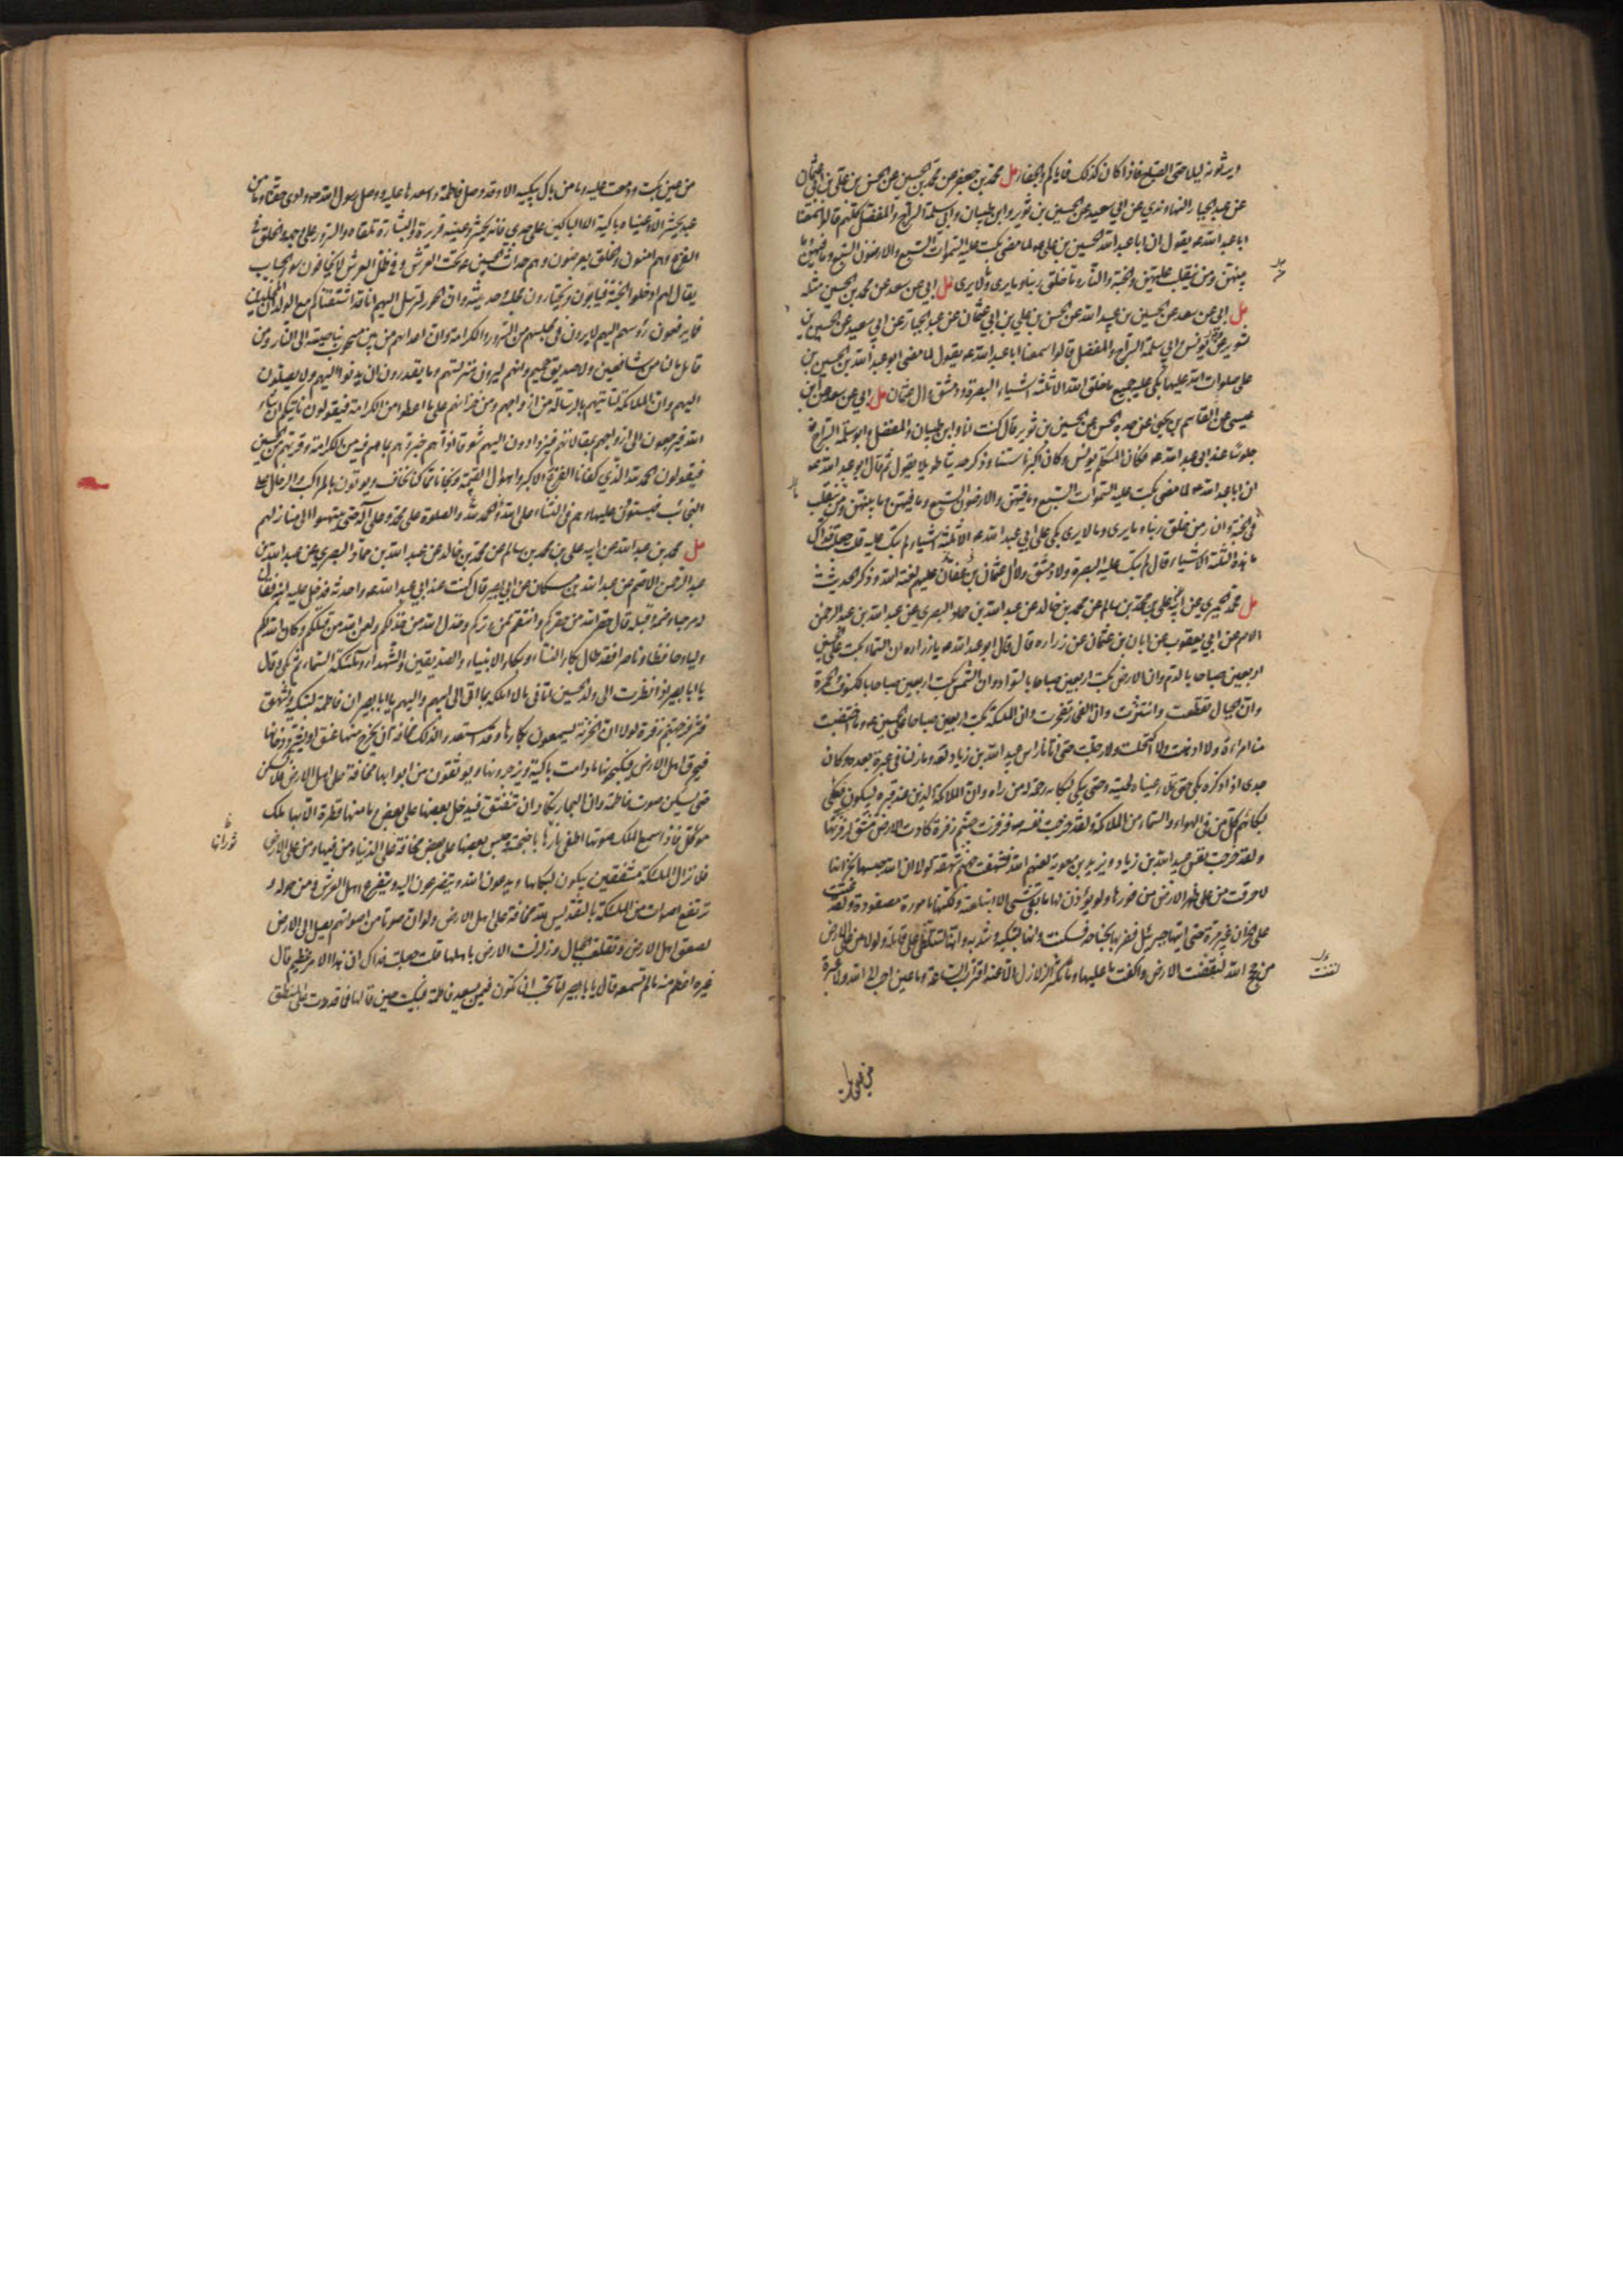 ويرثونه ليلا حتى الصبح فاذا كان كذلك فاياكم والجفا مل محمد بن جعفر عن محمد بن الحسين عن الحسن بن علي بن ابي عثمان
عن عبد الجبار النهاوندي عن ابي سعيد عن الحسين بن ثوير وابن ظبيان وابي سلمة السراج والمفضل كلهم قالوا سمعنا
ابا عبد الله ع يقول ان ابا عبد الله الحسين بن علي ع لما مضى بكت عليه السموات السبع والارضون السبع وما فيهن وما
بينهن ومن ينقلب عليهن والجنة والنار وما خلق ربنا وما يرى وما لا يرى مل ابي عن سعد عن محمد بن الحسين مثله
مل ابي عن سعد عن الحسين بن عبيد الله عن الحسن بن علي بن ابي عثمان عن عبد الجبار عن ابي سعيد عن الحسين بن
ثوير عن يونس وابي سلمة السراج والمفضل قالوا سمعنا ابا عبد الله ع يقول لما مضى ابو عبد الله الحسين بن
علي صلوات الله عليهما بكى عليه جميع ما خلق الله الا ثلثة اشياء البصرة ودمشق وال عثمان مل ابي عن سعد عن ابن
عيسى عن القاسم بن يحيى عن جده الحسن عن الحسين بن ثوير قال كنت انا وابن ظبيان والمفضل وابو سلمة السراج
جلوسا عند ابي عبد الله ع فكان المتكلم يونس وكان اكبرنا سنا وذكر حديثا طويلا يقول ثم قال ابو عبد الله ع
ان ابا عبد الله ع لما مضى بكت عليه السموات السبع وما فيهن والارضون السبع وما فيهن وما بينهن ومن ينقلب
في الجنة والنار من خلق ربنا وما يرى وما لا يرى بكى على ابي عبد الله ع الا ثلثة اشياء لم تبك عليه قلت جعلت فداك
ما هذه الثلثة الاشياء قال لم تبك عليه البصرة ولا دمشق ولا ال عثمان بن عفان عليهم لعنة الله وذكر الحديث
مل محمد الحميري عن ابيه عن علي بن محمد بن سالم عن محمد بن خالد عن عبد الله بن حماد البصري عن عبد الله بن عبد الرحمن
الاصم عن ابي يعقوب عن ابان بن عثمان عن زرارة قال قال ابو عبد الله ع يا زرارة ان السماء بكت على الحسين
اربعين صباحا بالدم وان الارض بكت اربعين صباحا بالسواد وان الشمس بكت اربعين صباحا بالكسوف والحمرة
وان الجبال تقطعت وانتثرت وان البحار تفجرت وان الملئكة بكت اربعين صباحا على الحسين ع وما اختضبت
منا امراة ولا ادهنت ولا اكتحلت ولا رجلت حتى اتانا راس عبيد الله بن زياد لعنه وما زلنا في عبرة بعده وكان
جدي اذا ذكره بكى حتى تملا عيناه لحيته وحتى يبكي لبكائه رحمة له من راه وان الملائكة الذين عند قبره ليبكون فيبكي
لبكائهم كل من في الهواء والسماء من الملائكة ولقد خرجت نفسه ع فزفرت جهنم زفرة كادت الارض تنشق لزفرتها
ولقد خرجت نفس عبيد الله بن زياد ويزيد بن معوية لعنهم الله فشهقت جهنم شهقة لولا ان الله حبسها بخزانها
لاحرقت من على ظهر الارض من فورها ولو يؤذن لها ما بقي شيء الا ابتلعته ولكنها مامورة مصفودة ولقد عتت
على الخزان غير مرة حتى اتاها جبرئيل فضربها بجناحه فسكنت وانها لتبكيه وتندبه وانها لتتلظى على قاتله ولولا من على الارض
من حجج الله لنقضت الارض واكفت ما عليها وما تكثر الزلازل الا عند اقتراب الساعة وما عين احب الى الله ولا عبرة
من عين بكت ودمعت عليه وما من باك يبكيه الا وقد وصل فاطمة واسعدها عليه ووصل رسول الله ص وادى حقنا وما من
عبد يحشر الا وعيناه باكية الا الباكين على جدي فانه يحشر وعينه قريرة والبشارة تلقاه والسرور على وجهه والخلق في
الفزع وهم امنون والخلق يعرضون وهم حداث الحسين ع تحت العرش وفي ظل العرش لا يخافون سوء الحساب
يقال لهم ادخلوا الجنة فيابون ويختارون مجلسه وحديثه وان الحور لترسل اليهم انا قد اشتقناكم مع الولدان المخلدين
فما يرفعون رؤسهم اليهم لما يرون في مجلسهم من السرور والكرامة وان اعداءهم من بين مسحوب بناصيته الى النار ومن
قائل ما لنا من شافعين ولا صديق حميم وانهم ليرون منزلتهم وما يقدرون ان يدنوا اليهم ولا يصلون
اليهم وان الملائكة لتاتيهم بالرسالة من ازواجهم ومن خزانهم على ما اعطوا من الكرامة فيقولون ناتيكم ان شاء
الله فيرجعون الى ازواجهم بمقالاتهم فيزدادون اليهم شوقا اذا هم خبروهم بما هم فيه من الكرامة وقربهم من الحسين
فيقولون الحمد لله الذي كفانا الفزع الاكبر واهوال القيمة ونجانا مما كنا نخاف ويؤتون بالمراكب والرحال على
النجائب فيستوون عليها وهم في الثناء على الله والحمد لله والصلوة على محمد وعلى آله حتى ينتهوا الى منازلهم
مل محمد بن عبد الله عن ابيه عن علي بن محمد بن سالم عن محمد بن خالد عن عبد الله بن حماد البصري عن عبد الله بن
عبد الرحمن الاصم عن عبد الله بن مسكان عن ابي بصير قال كنت عند ابي عبد الله ع واحدثه فدخل عليه ابنه فقال
له مرحبا وضمه وقبله وقال حقر الله من حقركم وانتقم ممن وتركم وخذل الله من خذلكم ولعن الله من قتلكم وكان الله لكم
وليا وحافظا وناصرا فقد طال بكاء النساء وبكاء الانبياء والصديقين والشهداء وملئكة السماء ثم بكى وقال
يا ابا بصير اذا نظرت الى ولد الحسين اتاني ما لا املكه بما اتى الى ابيهم واليهم يا ابا بصير ان فاطمة لتبكيه وتشهق
فتزفر جهنم زفرة لولا ان الخزنة يسمعون بكاءها وقد استعدوا لذلك مخافة ان يخرج منها عنق او يشرد دخانها
فيحرق اهل الارض فيكبحونها ما دامت باكية ويزجرونها ويوثقون من ابوابها مخافة على اهل الارض فلا تسكن
حتى يسكن صوت فاطمة وان البحار تكاد ان تنفتق فيدخل بعضها على بعض وما منها قطرة الا بها ملك
موكل فاذا سمع الملك صوتها اطفى نارها باجنحته وحبس بعضها على بعض مخافة على الدنيا ومن فيها ومن على الارض
فلا تزال الملئكة مشفقين يبكون لبكائها ويدعون الله ويتضرعون اليه ويتضرع اهل العرش ومن حوله و
ترتفع اصوات من الملئكة بالتقديس لله مخافة على اهل الارض ولو ان صوتا من اصواتهم يصل الى الارض
لصعق اهل الارض وتقلعت الجبال وزلزلت الارض باهلها قلت جعلت فداك ان هذا الامر عظيم قال
غيره اعظم منه ما لم تسمعه ثم قال يا ابا بصير اما تحب ان تكون فيمن يسعد فاطمة فبكيت حين قالها فما قدرت على المنطق